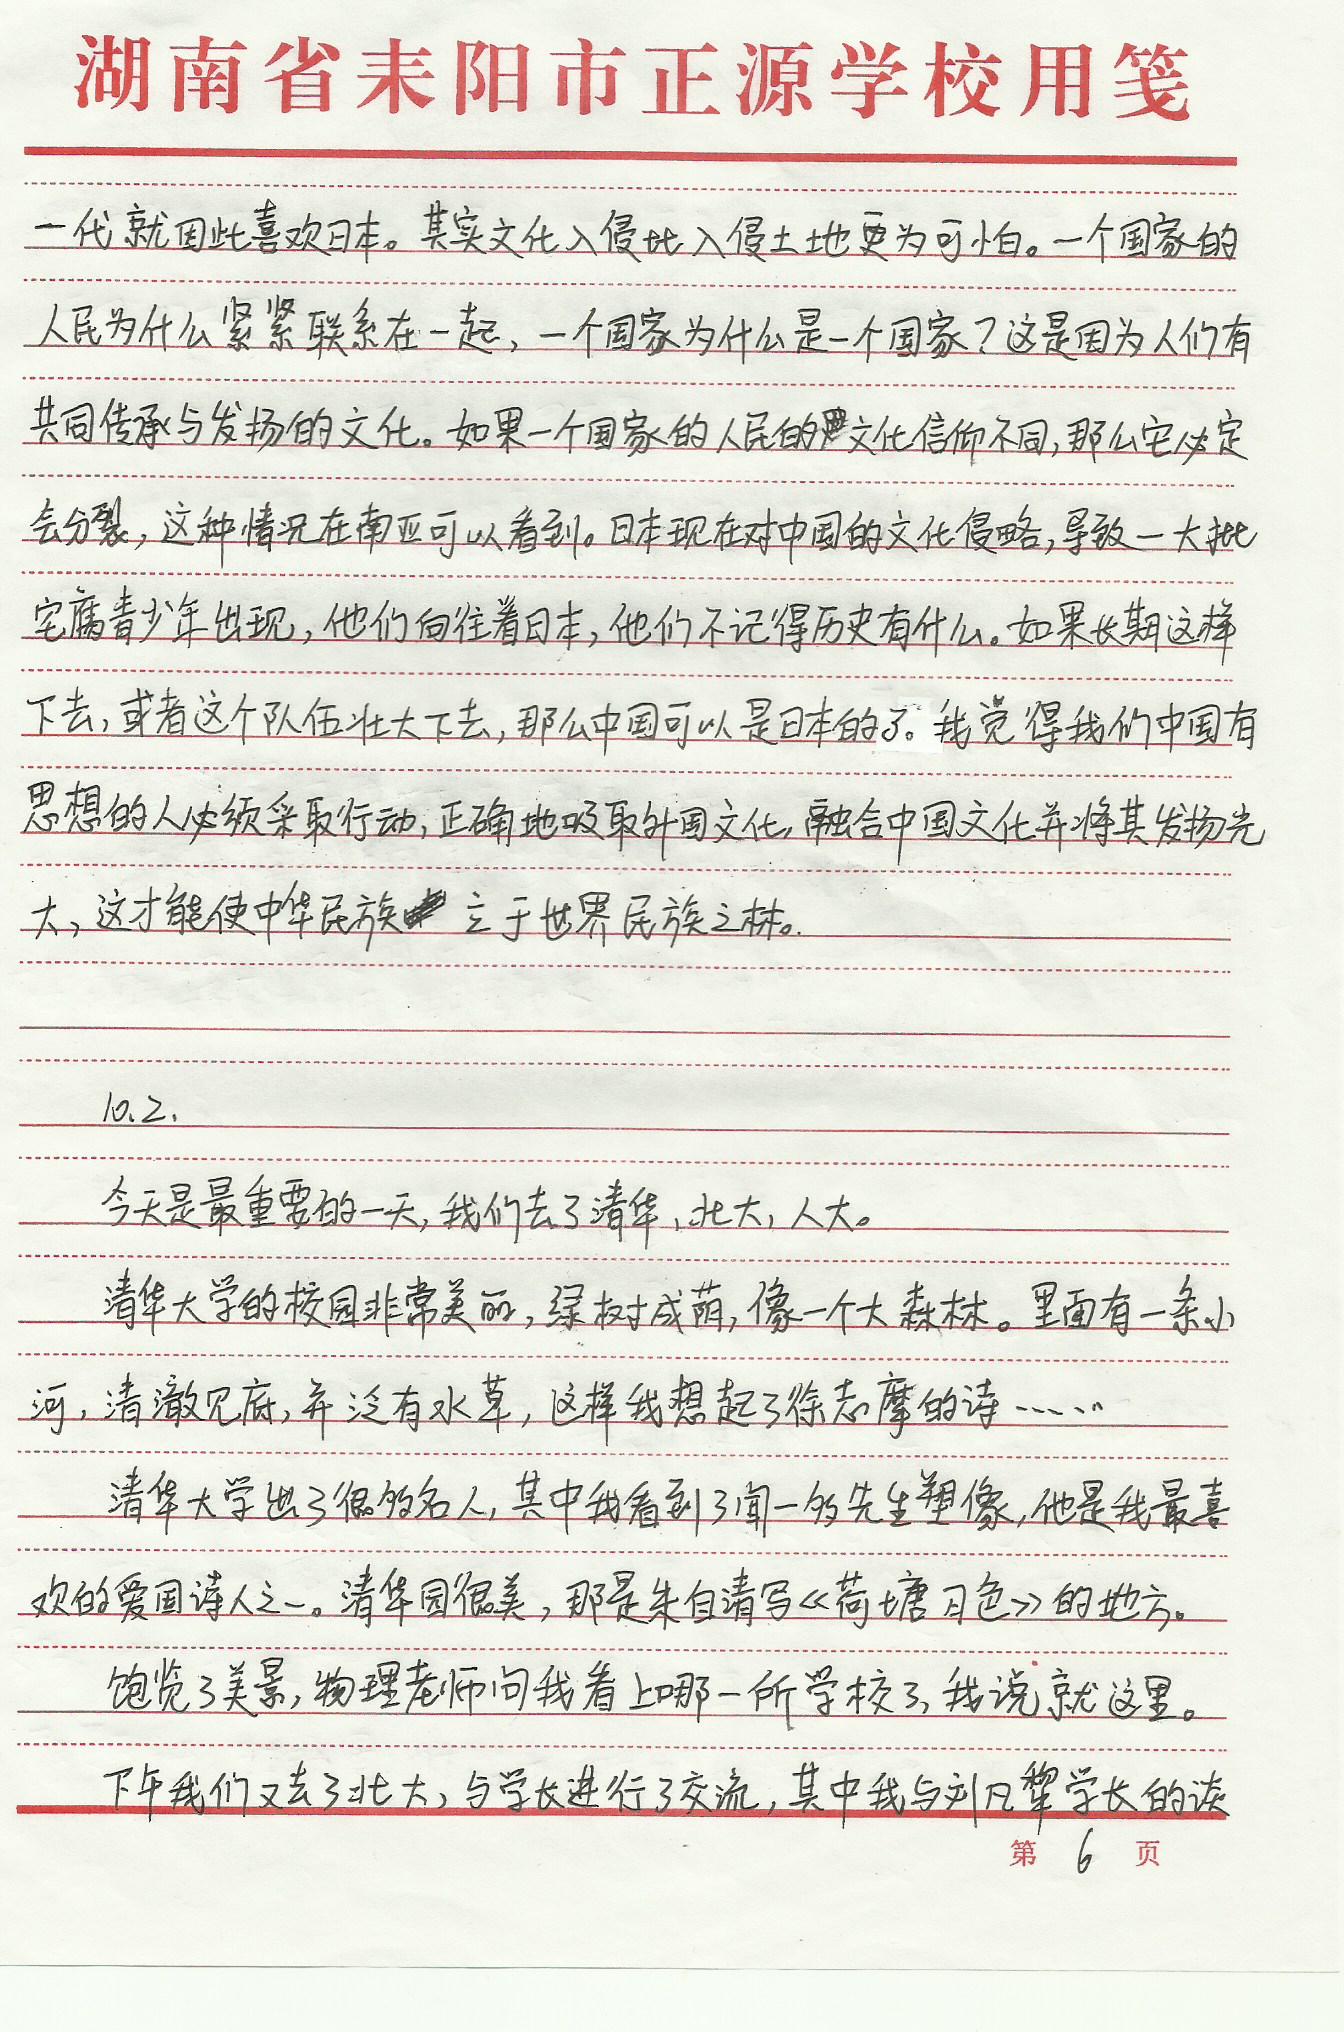 湖南省耒阳市正源学校用笺
一代就因此喜欢日本。其实文化入侵比入侵土地更为可怕。一个国家的
人民为什么紧紧联系在一起，一个国家为什么是一个国家？这是因为人们有
共同传承与发扬的文化。如果一个国家的人民的文化信仰不同，那么它必定
会分裂，这种情况在南亚可以看到。日本现在对中国的文化侵略，导致一大批
宅腐青少年出现，他们向往着日本，他们不记得历史有什么。如果长期这样
下去，或者这个队伍壮大下去，那么中国可以是日本的了。我觉得我们中国有
思想的人必须采取行动，正确地吸取外国文化，融合中国文化并将其发扬光
大，这才能使中华民族立于世界民族之林。
10.2.
今天是最重要的一天，我们去了清华，北大，人大。
清华大学的校园非常美丽，绿树成荫，像一个大森林。里面有一条小
河，清澈见底，并没有水草，这样我想起了徐志摩的诗……
清华大学出了很多名人，其中我看到了闻一多先生塑像，他是我最喜
欢的爱国诗人之一。清华园很美，那是朱自清写《荷塘月色》的地方。
饱览了美景，物理老师问我看上哪一所学校了，我说就这里。
下午我们又去了北大，与学长进行了交流，其中我与刘凡犁学长的谈
第 6 页